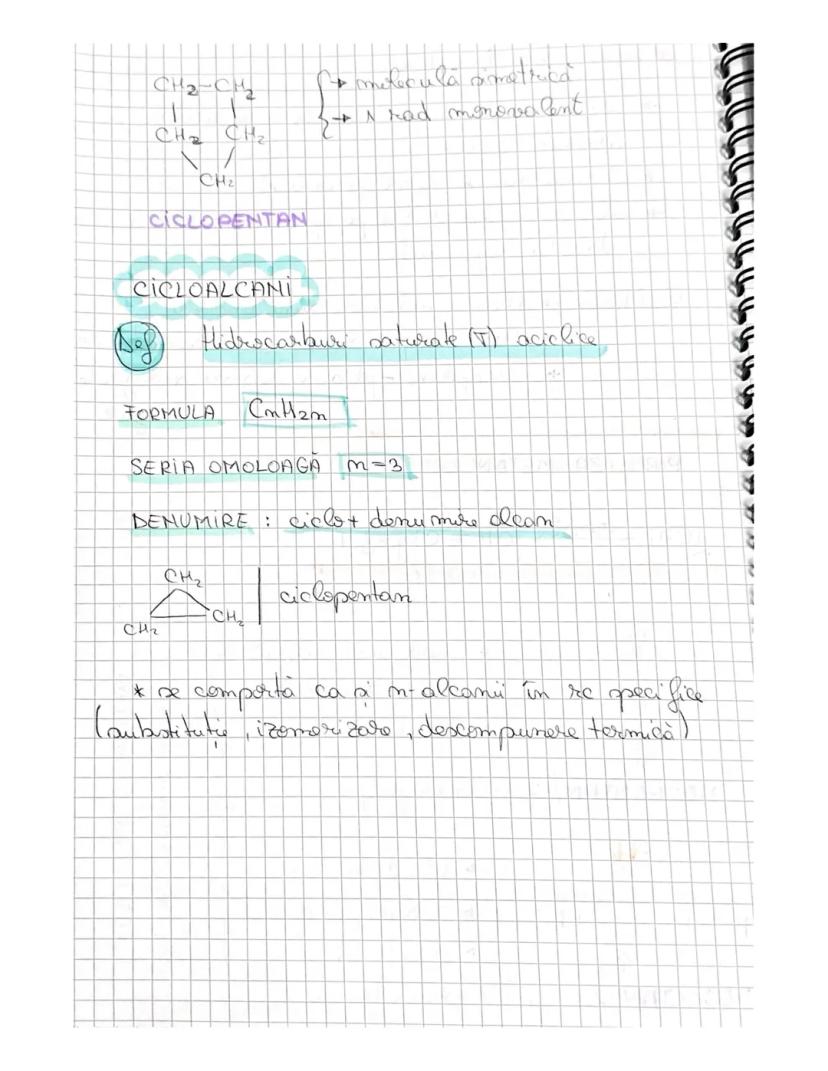 CH2-CH2 → moleculă simetrică
→ 1 rad monovalent
CH2 CH2
CH2
CICLOPENTAN
CICLOALCANI
Def Hidrocarburi saturate (T) aciclice
FORMULA CnH2n
SERIA OMOLOAGĂ n=3
DENUMIRE : ciclo + denumire alcan
CH2
ciclopentan
CH2
CH2
* se comportă ca și n-alcanii în rc specifice
(substituție, izomerizare, descompunere termică)